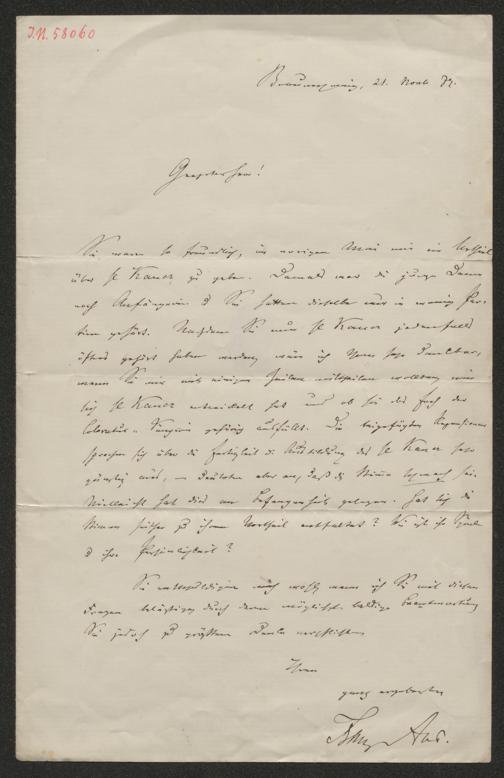 I.N. 58060
Braunschweig, 21. Novb 79.
Geehrter Herr!
Sie waren so freundlich, im vorigen Mai mir ein Urtheil
über Frl Kauer zu geben. Damals war die junge Dame
noch Anfängerin & Sie hatten dieselbe nur in wenig Par-
tien gehört. Nachdem Sie nun Frl Kauer jedenfalls
öfters gehört haben werden, wäre ich Ihnen sehr dankbar,
wenn Sie mir mit einigen Zeilen mittheilen wollten, wie
sich Frl Kauer entwickelt hat und ob sie das Fach der
Coloratur Sängerin gehörig ausfüllt. Die beigefügten Recensionen
sprechen sich über die Fertigkeit & Ausbildung des Frl Kauer sehr
günstig aus, deuteten aber an, daß die Stimme schwach sei.
Vielleicht hat dies an Befangenheit gelegen. Hat sich die
Stimme seither zu ihrem Vortheil entfaltet? Wie ist ihr Spiel
& ihre Persönlichkeit?
Sie entschuldigen auch wohl, wenn ich Sie mit diesen
Fragen belästige, durch deren möglichst baldige Beantwortung
Sie jedoch zu größtem Danke verpflichten
Ihren
ganz ergebenen